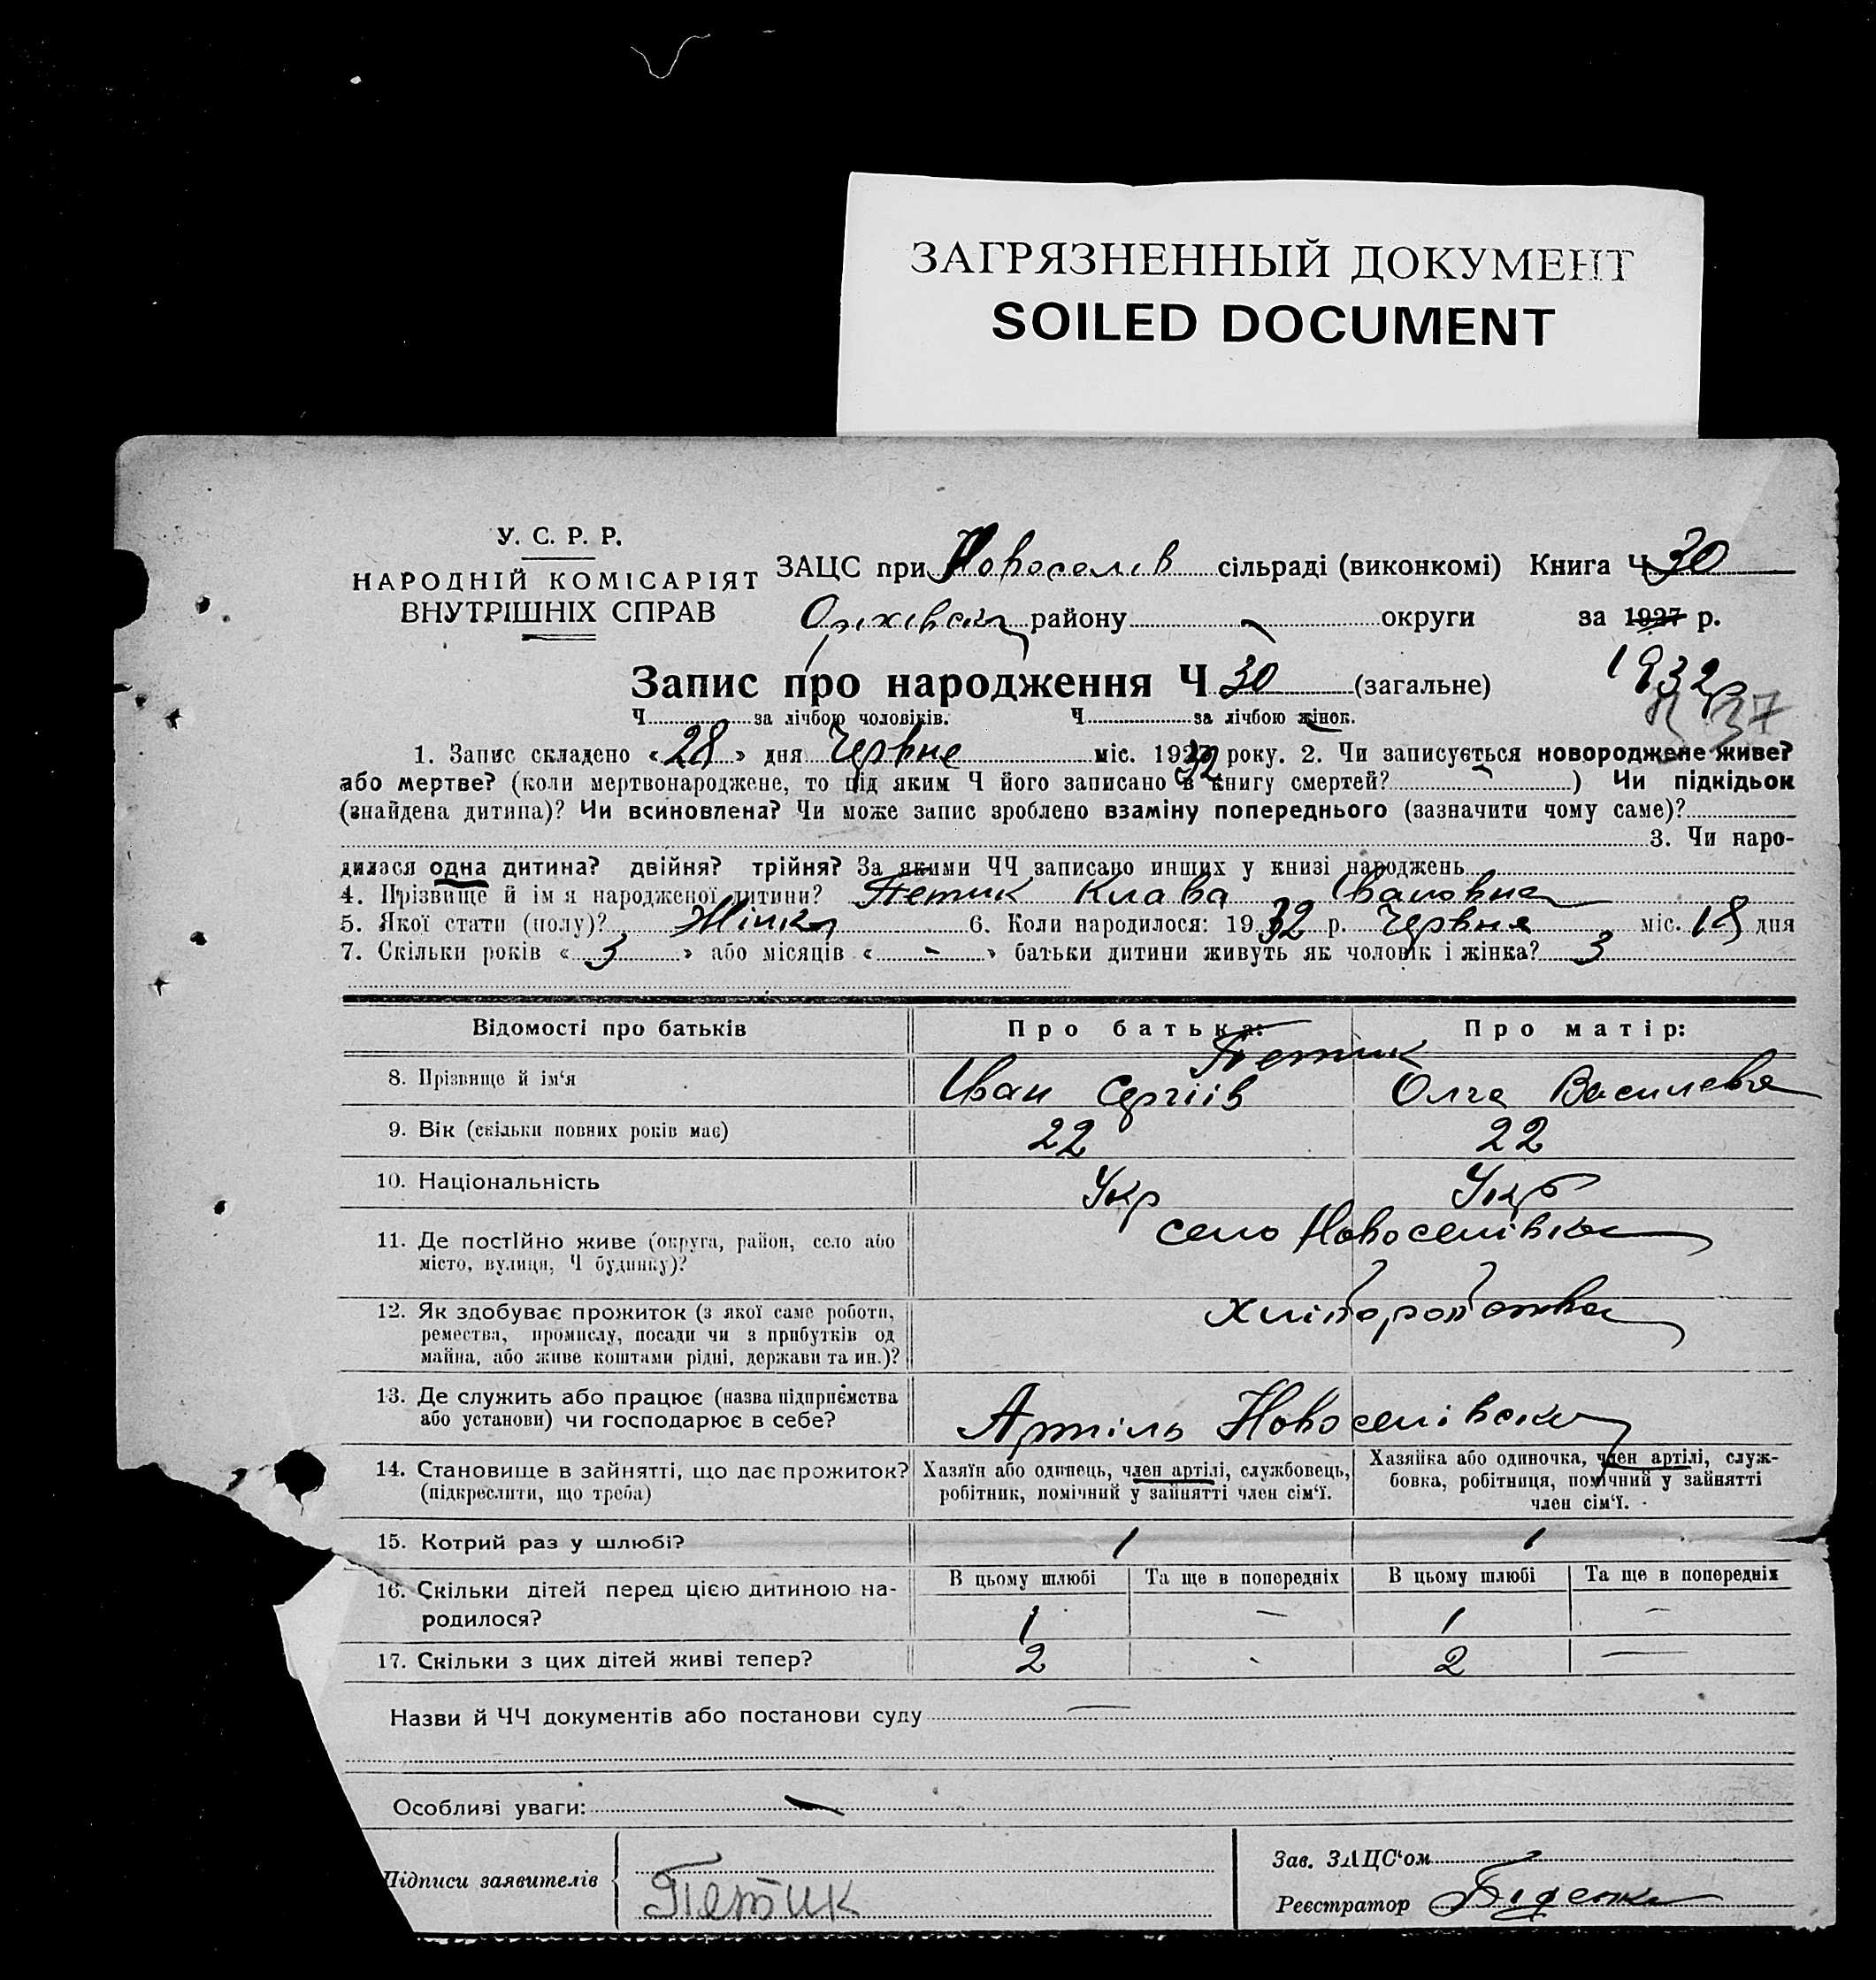 ЗАГРЯЗНЕННЫЙ ДОКУМЕНТ
SOILED DOCUMENT
У. С. Р. Р.
НАРОДНІЙ КОМІСАРІЯТ
ВНУТРІШНІХ СПРАВ
ЗАЦС при Новоселів сільраді (виконкомі) Книга Ч 30
Оріхівськ району округи за 1927 р.
1932
37
Запис про народження Ч 30 (загальне)
Ч за лічбою чоловіків. Ч за лічбою жінок.
1. Запис складено « 28 » дня Червня міс. 1932 року. 2. Чи записується новороджене живе?
або мертве? (коли мертвонароджене, то під яким Ч його записано в книгу смертей? ) Чи підкідьок
(знайдена дитина)? Чи всиновлена? Чи може запис зроблено взаміну попереднього (зазначити чому саме)?
3. Чи наро-
дилася одна дитина? двійня? трійня? За якими ЧЧ записано инших у книзі народжень
4. Прізвище й ім я народженої дитини? Петик Клава Івановна
5. Якої стати (полу)? Жінка 6. Коли народилося: 1932 р. Червня міс. 18 дня
7. Скільки років « 3 » або місяців « - » батьки дитини живуть як чоловік і жінка? 3
Відомості про батьків Про батька: Про матір:
Петик
8. Прізвище й ім‘я Іван Сергіїв Олга Василевна
9. Вік (скільки повних років має) 22 22
10. Національність Укр Укр
11. Де постІйно живе (округа, район, село або село Новоселівка
місто, вулиця, Ч будинку)?
12. Як здобуває прожиток (з якої саме роботи, хліборобства
ремества, промислу, посади чи з прибутків од
майна, або живе коштами рідні, держави та ин.)?
13. Де служить або працює (назва підприємства Артіль Новоселівська
або установи) чи господарює в себе?
14. Становище в зайнятті, що дає прожиток? Хазяїн або одинець, член артілі, службовець, Хазяйка або одиночка, член артілі, служ-
(підкреслити, що треба) робітник, помічний у зайнятті член сім‘ї. бовка, робітниця, помічний у зайнятті
член сім‘ї.
15. Котрий раз у шлюбі? 1 1
16. Скільки дітей перед цією дитиною на- В цьому шлюбі Та ще в попередніх В цьому шлюбі Та ще в попередніх
родилося? 1 — 1 —
17. Скільки з цих дітей живі тепер? 2 - 2 —
Назви й ЧЧ документів або постанови суду —
Особливі уваги: —
Підписи заявителів Петик
Зав. ЗАЦС‘ом
Реєстратор